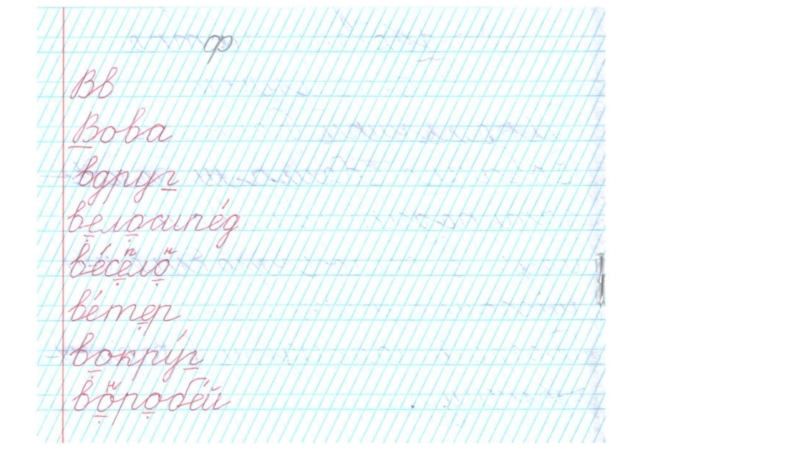 ф
Вв
Вова
вдруг
велосипе́д
ве́село
ве́тер
вокру́г
воробе́й